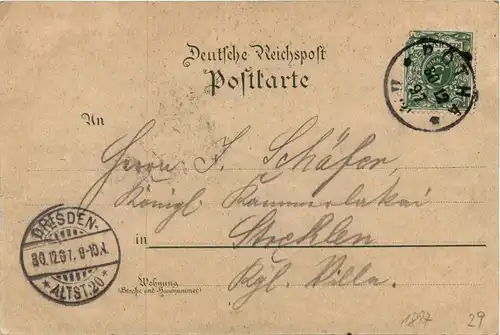 Deutsche Reichspost
Postkarte
GOTHA
An
Herrn F. Schäfer,
Königl. Kammerlakai
in Strehlen
Kgl. Villa.
Wohnung
(Straße und Hausnummer)
DRESDEN-
30.12.97. 9-10V.
* ALTST.20 *
1897 29